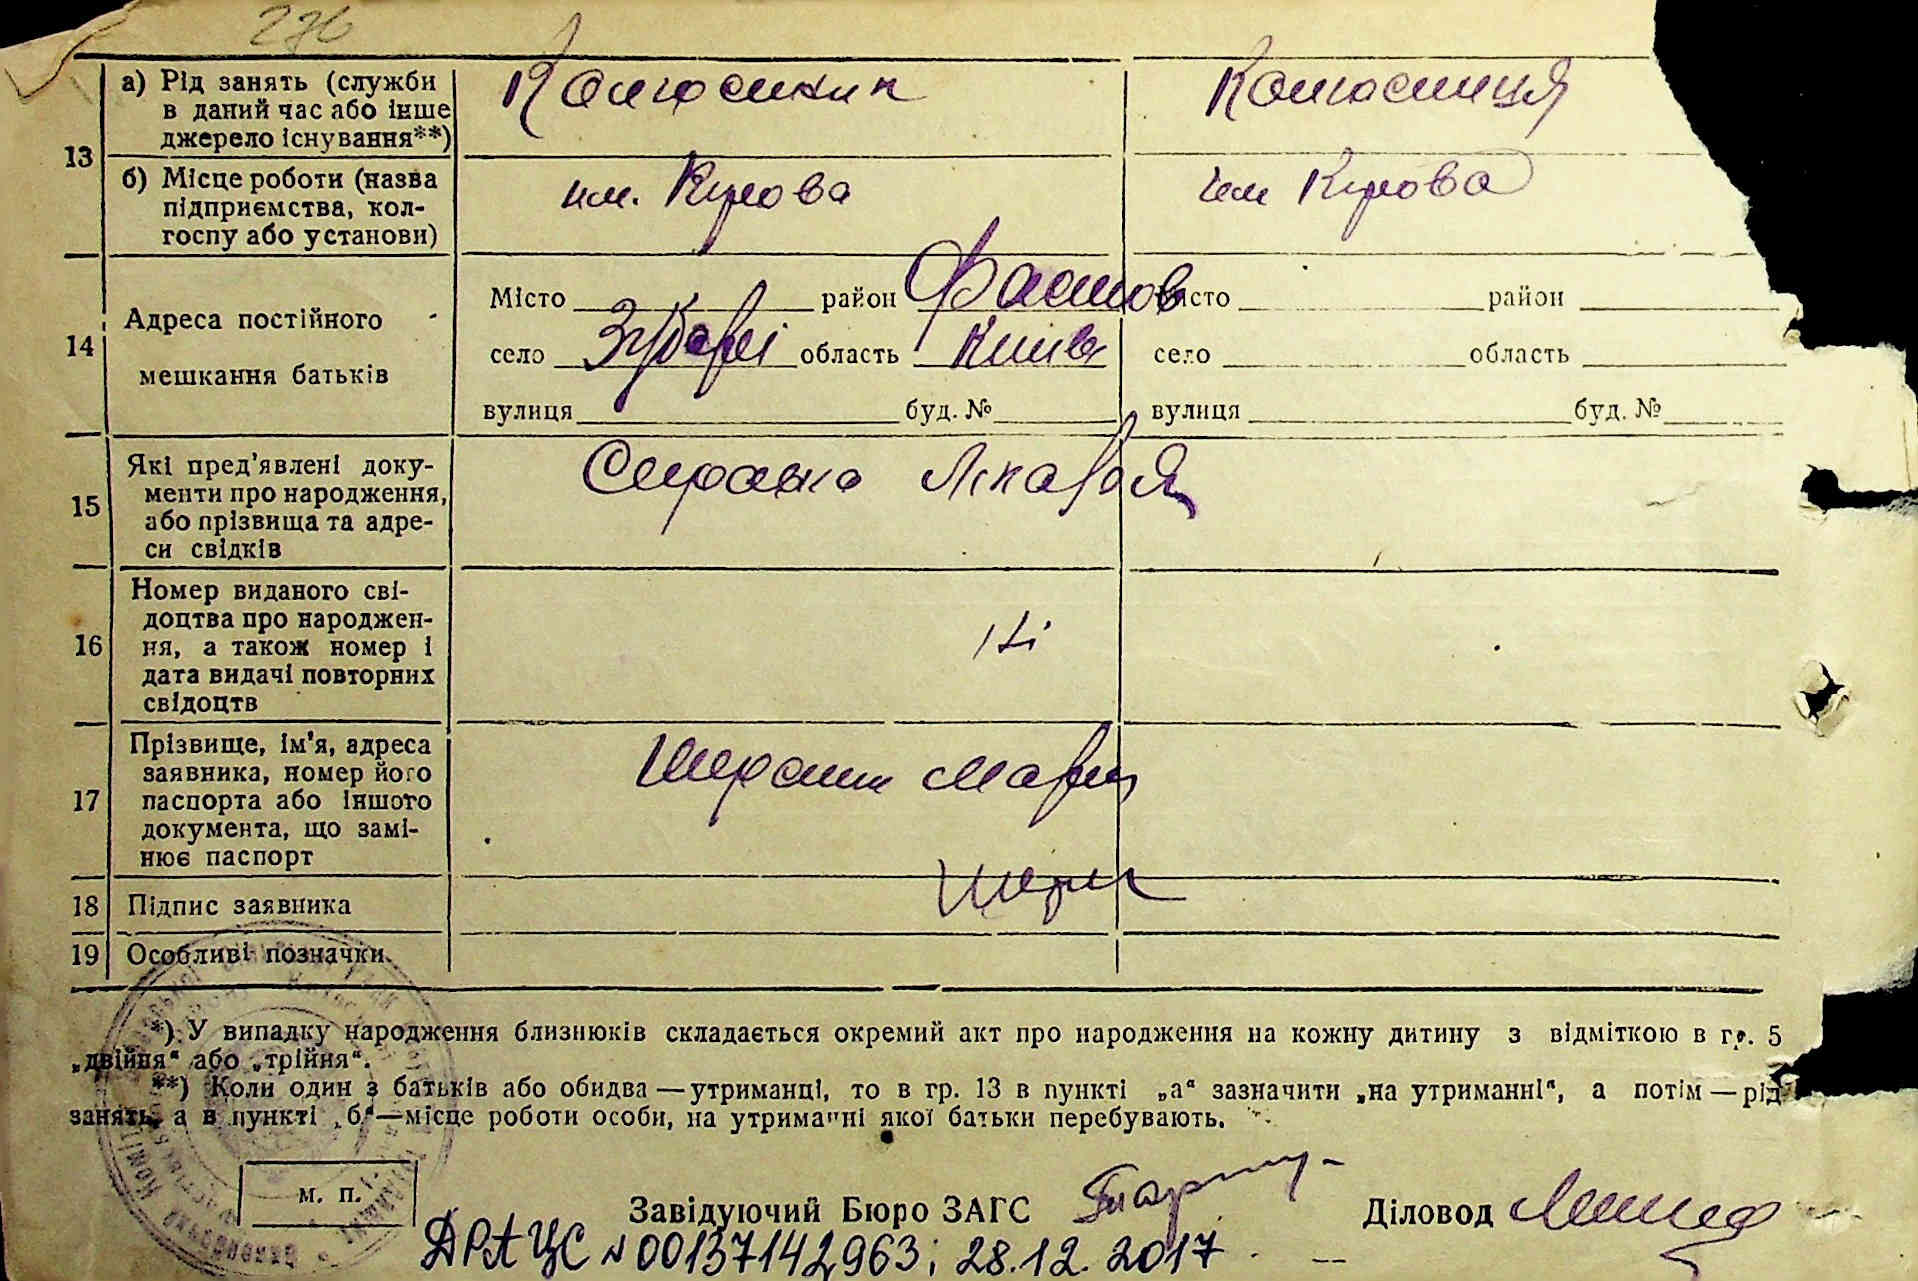 276
13
а) Рід занять (служби
в даний час або інше
джерело існування**)
Колгоспник
Колгоспниця
б) Місце роботи (назва
підприємства, кол-
госпу або установи)
им. Кірова
им Кірова
14
Адреса постійного
мешкання батьків
Місто район Фастов місто район
село область Київ село область
вулиця буд. № вулиця буд. №
15
Які пред'явлені доку-
менти про народження,
або прізвища та адре-
си свідків
Справка Лікаря
16
Номер виданого сві-
доцтва про народжен-
ня, а також номер і
дата видачі повторних
свідоцтв
17
Прізвище, ім'я, адреса
заявника, номер його
паспорта або іншого
документа, що замі-
нює паспорт
18
Підпис заявника
19
Особливі позначки
*) У випадку народження близнюків складається окремий акт про народження на кожну дитину з відміткою в гр. 5
„двійня“ або „трійня“.
**) Коли один з батьків або обидва — утриманці, то в гр. 13 в пункті „а“ зазначити „на утриманні“, а потім — рід
занять, а в пункті „б“—місце роботи особи, на утриманні якої батьки перебувають.
м. п.
Завідуючий Бюро ЗАГС
Діловод
ДРАЦС № 00137142963; 28.12.2017